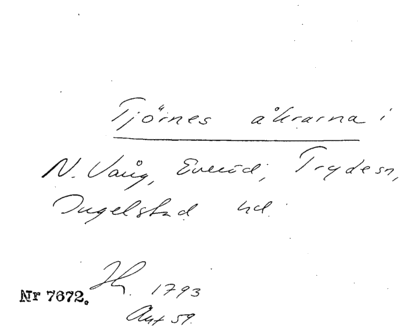 Tjörnes åkrarna i
N. Vång, Everöd, Trydesn,
Ingelstad hd.
Sk. 1793
Nr 7672.
Akt 59.